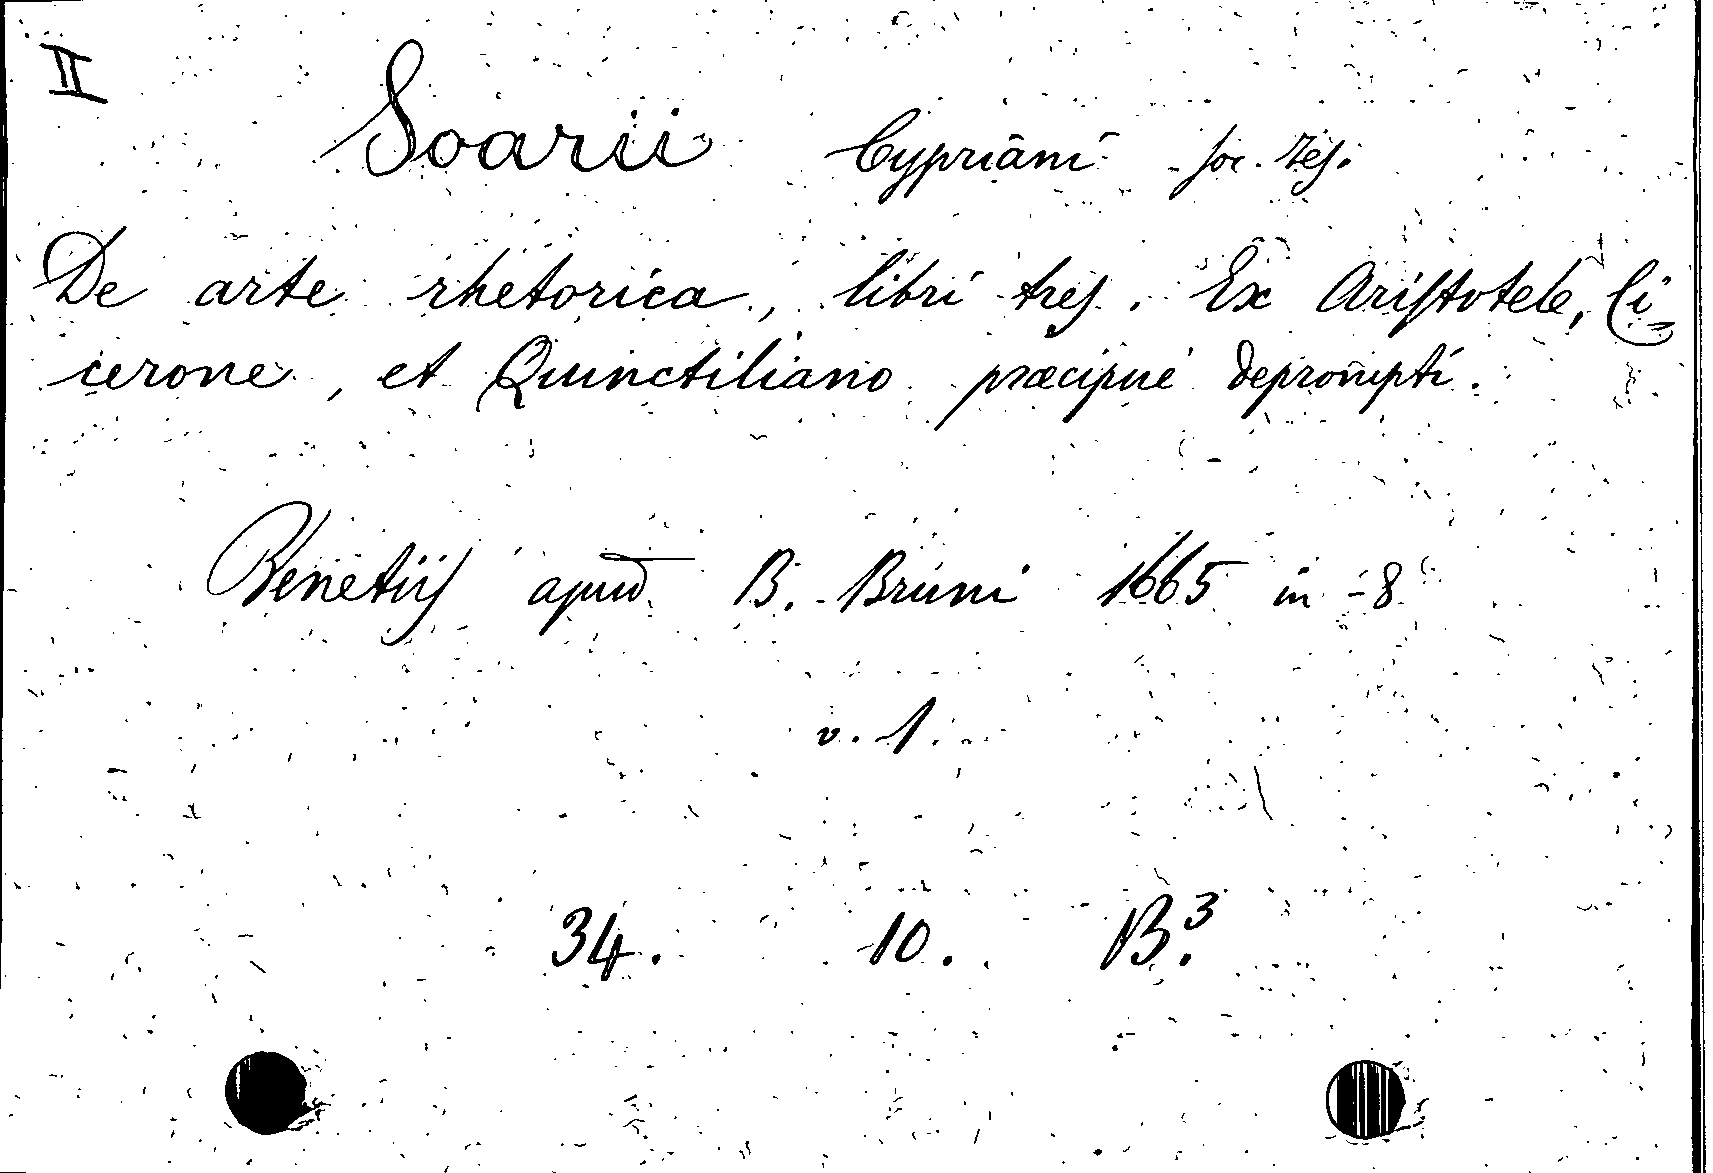 II
Soarii Cypriani Soc. Jes.
De arte rhetorica, libri tres. Ex Aristotele, Ci-
cerone, et Quinctiliano præcipuè deprompti.
Venetiis apud B. Bruni 1665 in-8°
v. 1.
34. 10. B.³